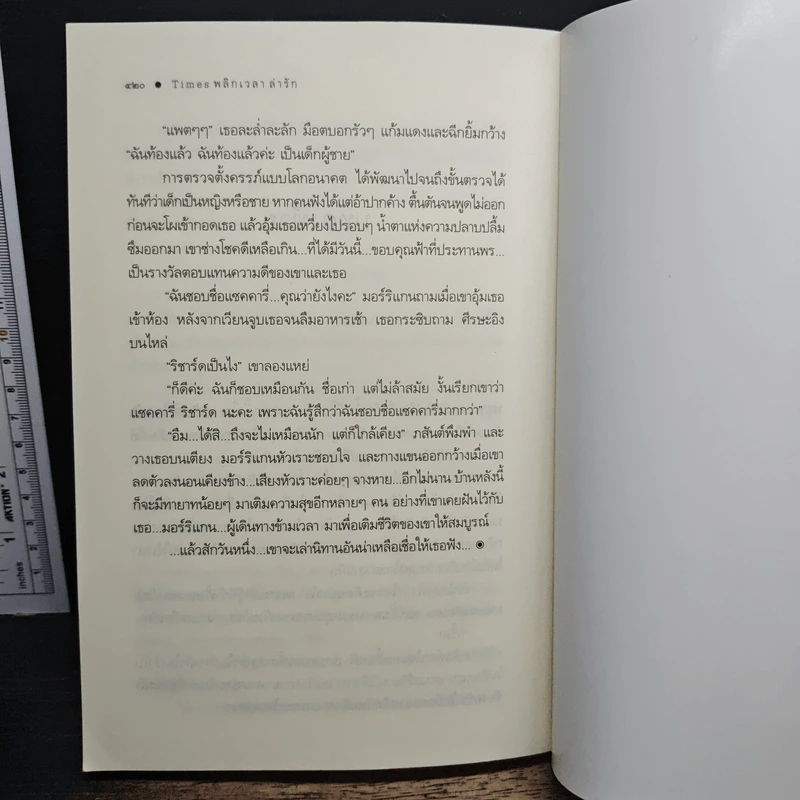 ๔๒๐ ● Times พลิกเวลา ล่ารัก
“แพตๆๆ” เธอละล่ำละลัก มือตบอกรัวๆ แก้มแดงและฉีกยิ้มกว้าง
“ฉันท้องแล้ว ฉันท้องแล้วค่ะ เป็นเด็กผู้ชาย”
การตรวจตั้งครรภ์แบบโลกอนาคต ได้พัฒนาไปจนถึงขั้นตรวจได้
ทันทีว่าเด็กเป็นหญิงหรือชาย หากคนฟังได้แต่อ้าปากค้าง ตื้นตันจนพูดไม่ออก
ก่อนจะโผเข้ากอดเธอ แล้วอุ้มเธอเหวี่ยงไปรอบๆ น้ำตาแห่งความปลาบปลื้ม
ซึมออกมา เขาช่างโชคดีเหลือเกิน...ที่ได้มีวันนี้...ขอบคุณฟ้าที่ประทานพร...
เป็นรางวัลตอบแทนความดีของเขาและเธอ
“ฉันชอบชื่อแซคคารี่...คุณว่ายังไงคะ” มอร์ริแกนถามเมื่อเขาอุ้มเธอ
เข้าห้อง หลังจากเวียนจูบเธอจนลืมอาหารเช้า เธอกระซิบถาม ศีรษะอิง
บนไหล่
“ริชาร์ดเป็นไง” เขาลองแหย่
“ก็ดีค่ะ ฉันก็ชอบเหมือนกัน ชื่อเก่า แต่ไม่ล้าสมัย งั้นเรียกเขาว่า
แซคคารี่ ริชาร์ด นะคะ เพราะฉันรู้สึกว่าฉันชอบชื่อแซคคารี่มากกว่า”
“อืม...ได้สิ...ถึงจะไม่เหมือนนัก แต่ก็ใกล้เคียง” ภสันต์พึมพำ และ
วางเธอบนเตียง มอร์ริแกนหัวเราะชอบใจ และกางแขนออกกว้างเมื่อเขา
ลดตัวลงนอนเคียงข้าง...เสียงหัวเราะค่อยๆ จางหาย...อีกไม่นาน บ้านหลังนี้
ก็จะมีทายาทน้อยๆ มาเติมความสุขอีกหลายๆ คน อย่างที่เขาเคยฝันไว้กับ
เธอ...มอร์ริแกน...ผู้เดินทางข้ามเวลา มาเพื่อเติมชีวิตของเขาให้สมบูรณ์
...แล้วสักวันหนึ่ง...เขาจะเล่านิทานอันน่าเหลือเชื่อให้เธอฟัง... ◉
inches 1 2
AKTION
10